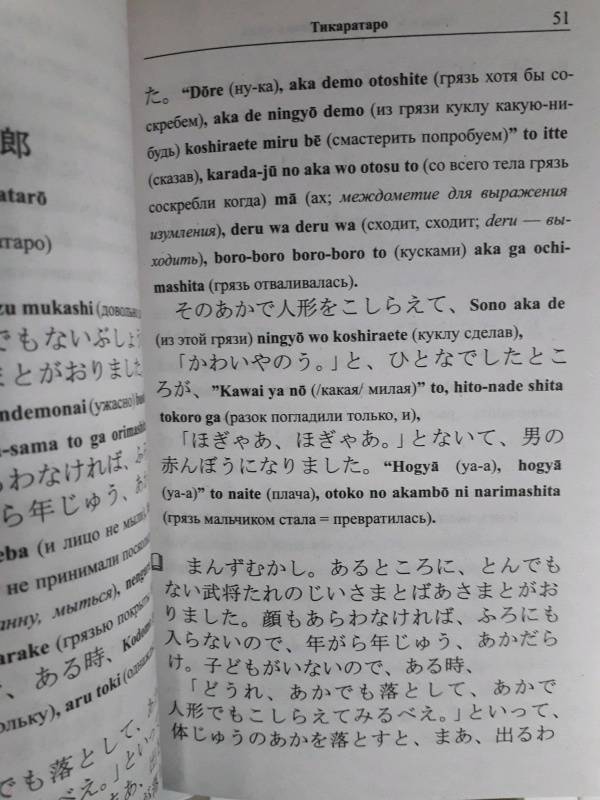 郎
atarō
zu mukashi (довольно
でもないぶしょう
まとがおりました
ndemonai (ужасно)
-sama to ga orimashi
らわなければ、ふ
ら年じゅう、あ
eba (и лицо не мыли,
не принимали
ванну, мыться), neng
arake (грязью покрыты
、ある時、Kodomo
ольку), aru toki (однажды
でも落として、
べえ。」といっ
Тикаратаро 51
た。 “Dōre (ну-ка), aka demo otoshite (грязь хотя бы со-
скребем), aka de ningyō demo (из грязи куклу какую-ни-
будь) koshiraete miru bē (смастерить попробуем)” to itte
(сказав), karada-jū no aka wo otosu to (со всего тела грязь
соскребли когда) mā (ах; междометие для выражения
изумления), deru wa deru wa (сходит, сходит; deru — вы-
ходить), boro-boro boro-boro to (кусками) aka ga ochi-
mashita (грязь отваливалась).
そのあかで人形をこしらえて、 Sono aka de
(из этой грязи) ningyō wo koshiraete (куклу сделав),
「かわいやのう。」と、ひとなでしたとこ
ろが、 ”Kawai ya nō (/какая/ милая)” to, hito-nade shita
tokoro ga (разок погладили только, и),
「ほぎゃあ、ほぎゃあ。」とないて、男の
赤んぼうになりました。 “Hogyā (уа-а), hogyā
(уа-а)” to naite (плача), otoko no akambō ni narimashita
(грязь мальчиком стала = превратилась).
まんずむかし。あるところに、とんでも
ない武将たれのじいさまとばあさまとがお
りました。顔もあらわなければ、ふろにも
入らないので、年がら年じゅう、あかだら
け。子どもがいないので、ある時、
「どうれ、あかでも落として、あかで
人形でもこしらえてみるべえ。」といって、
体じゅうのあかを落とすと、まあ、出るわ